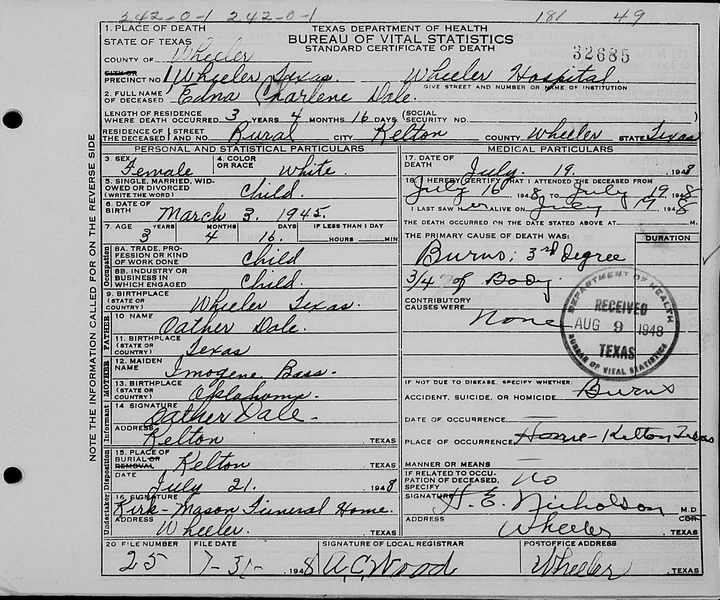 242-0-1 242-0-1 181 49
TEXAS DEPARTMENT OF HEALTH
BUREAU OF VITAL STATISTICS
STANDARD CERTIFICATE OF DEATH
32685
1. PLACE OF DEATH
STATE OF TEXAS
COUNTY OF Wheeler
CITY OR PRECINCT NO. 1 Wheeler Texas. Wheeler Hospital.
GIVE STREET AND NUMBER OR NAME OF INSTITUTION
2. FULL NAME OF DECEASED Edna Charlene Dale.
LENGTH OF RESIDENCE WHERE DEATH OCCURRED 3 YEARS 4 MONTHS 16 DAYS (SOCIAL SECURITY NO. )
RESIDENCE OF THE DECEASED STREET AND NO. Rural CITY Kelton COUNTY Wheeler STATE Texas
PERSONAL AND STATISTICAL PARTICULARS
3 SEX Female 4. COLOR OR RACE White.
5. SINGLE, MARRIED, WIDOWED OR DIVORCED (WRITE THE WORD) Child.
6. DATE OF BIRTH March 3, 1945.
7. AGE YEARS MONTHS DAYS IF LESS THAN 1 DAY
3 4 16. HOURS MIN
8A. TRADE, PROFESSION OR KIND OF WORK DONE Child
8B. INDUSTRY OR BUSINESS IN WHICH ENGAGED Child.
Occupation
9. BIRTHPLACE (STATE OR COUNTRY) Wheeler Texas.
FATHER
10 NAME Oather Dale.
11. BIRTHPLACE (STATE OR COUNTRY) Texas
MOTHER
12. MAIDEN NAME Imogene Bass.
13. BIRTHPLACE (STATE OR COUNTRY) Oplahoma.
Informant
14 SIGNATURE Oather Dale-
ADDRESS Kelton TEXAS
Disposition
15. PLACE OF BURIAL OR REMOVAL Kelton TEXAS
DATE July 21. 1948
Undertaker
16. SIGNATURE Kirk-Mason Funeral Home.
ADDRESS Wheeler. TEXAS
MEDICAL PARTICULARS
17. DATE OF DEATH July. 19. 1948
18. I HEREBY CERTIFY THAT I ATTENDED THE DECEASED FROM
July 16 1948 TO July 19 1948
I LAST SAW H er ALIVE ON July 19 1948
THE DEATH OCCURRED ON THE DATE STATED ABOVE AT M.
THE PRIMARY CAUSE OF DEATH WAS: DURATION
Burns; 3rd Degree
3/4 of Body.
CONTRIBUTORY CAUSES WERE: None
DEPARTMENT OF HEALTH
RECEIVED
AUG 9 1948
TEXAS
BUREAU OF VITAL STATISTICS
IF NOT DUE TO DISEASE, SPECIFY WHETHER:
ACCIDENT, SUICIDE, OR HOMICIDE Burns
DATE OF OCCURRENCE
PLACE OF OCCURRENCE Home-Kelton, Texas
MANNER OR MEANS
IF RELATED TO OCCUPATION OF DECEASED, SPECIFY No
SIGNATURE H. E. Nicholson M.D
ADDRESS Wheeler TEXAS
20 FILE NUMBER 25
FILE DATE 7-31- 1948
SIGNATURE OF LOCAL REGISTRAR A.C. Wood
POSTOFFICE ADDRESS Wheeler TEXAS
NOTE THE INFORMATION CALLED FOR ON THE REVERSE SIDE